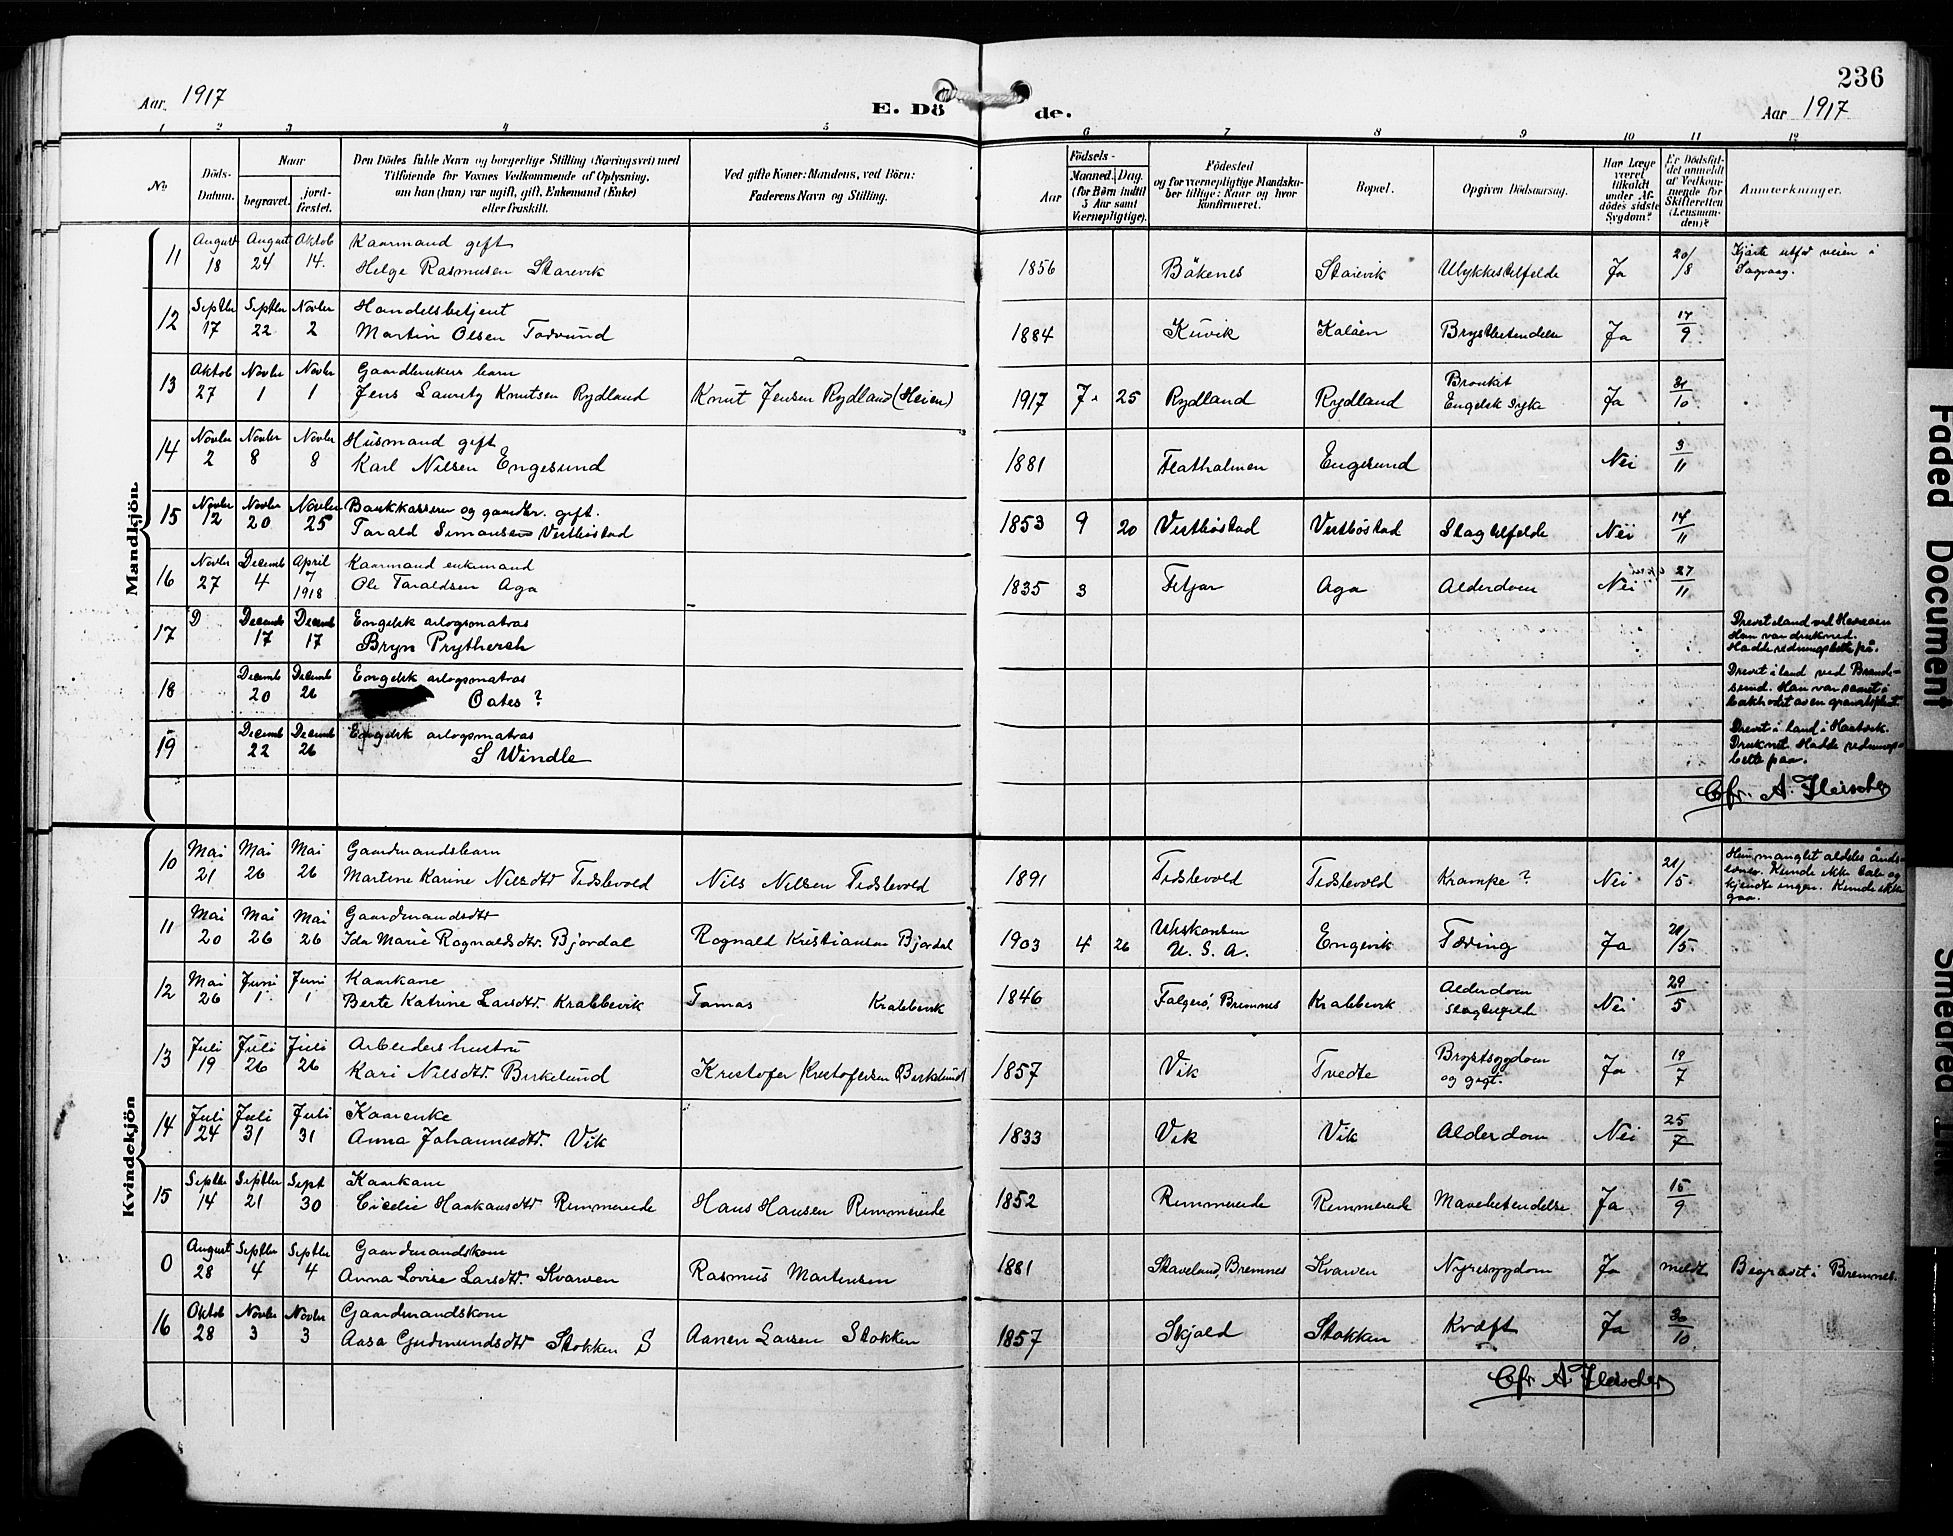 Aar 1917
E. Dö
de.
236
Aar 1917
1 2 3 4 5 6 7 8 9 10 11 12
No
Döds-Datum.
Naar
begravet.
jord-fæstet.
Den Dödes fulde Navn og borgerlige Stilling (Næringsvei) med
Tilföiende for Voxnes Vedkommende af Oplysning,
om han (hun) var ugift, gift, Enkemand (Enke)
eller fraskilt.
Ved gifte Koner: Mandens, ved Börn:
Faderens Navn og Stilling.
Födsels-
Aar
Maaned. Dag.
(for Börn indtil
5 Aar samt
Værnepligtige).
Födested
og for værnepligtige Mandska-
ber tillige: Naar og hvor
konfirmeret.
Bopæl.
Opgiven Dödsaarsag.
Har Læge
været
tilkaldt
under Af-
dödes sidste
Sygdom?
Er Dödsfal-
det anmeldt
af Vedkom-
mende for
Skifteretten
(Lensman-
den)?
Anmærkninger.
Mandkjön
11 August 18 August 24 Oktob 14. Kaarmand gift
Helge Rasmusen Starevik 1856 Bökenes Starevik Ulykkestilfelde Ja 20/8 Kjörte utfor veien i
Sagvaag.
12 Septbr 17 Septbr 22 Novbr 2 Handelsbetjent
Martin Olsen Torvund 1884 Kuvik Kalåen Brystbetendelse Ja 17/9
13 Oktob 27 Novbr 1 Novbr 1 Gaardbrukers barn
Jens Lauritz Knutsen Rydland Knut Jensen Rydland (Heien) 1917 7 25 Rydland Rydland Bronkit
Engelsk syke Ja 31/10
14 Novbr 2 Novbr 8 Novbr 8 Husmand gift
Karl Nilsen Engesund 1881 Flatholmen Engesund Nei 3/11
15 Novbr 12 Novbr 20 Novbr 25 Bankkasserer og gaardbr. gift.
Tarald Simonsen Vestböstad 1853 9 20 Vestböstad Vestböstad Slagtilfelde Nei 14/11
16 Novbr 27 Decemb 4 April 7 1918 Kaarmand enkemand
Ole Taraldsen Aga 1835 3 Fitjar Aga Alderdom Nei 27/11
17 D Decemb 17 Decemb 17 Engelsk orlogsmatros
Bryn Prytherch Drevet iland ved
Han var druknet.
Hadde redningsbelte på.
18 Decemb 20 Decemb 26 Engelsk orlogsmatros
Oates? Drevet i land ved Brand-
sund. Han var saaret i
bakhodet av en granatsplint.
19 Decemb 22 Decemb 26 Engelsk orlogsmatros
S Windle Drevet i land i
Druknet. Hadde rednings-
belte paa.
Cfr. A. Fleischer
Kvindekjön
10 Mai 21 Mai 26 Mai 26 Gaardmandsbarn
Martine Karine Nilsdtr Tislevold Nils Nilsen Tislevold 1891 Tislevold Tislevold Krampe? Nei 21/5 Hun manglet aldeles ånds-
evner. Kunde ikke tale og
kjendte ingen. Kunde ikke
gaa.
11 Mai 20 Mai 26 Mai 26 Gaardmandsdtr
Ida Marie Rognaldsdtr. Bjordal Rognald Kristiansen Bjordal 1903 4 26
U. S. A. Engevik Tæring Ja 21/5.
12 Mai 26 Juni 1 Juni 1 Kaarkone
Berte Katrine Larsdtr. Krabbevik Tomas Krabbevik 1846 Folgerö, Bremnes Krabbevik Alderdom
slagtilfelde Nei 29/5
13 Juli 19 Juli 26 Juli 26 Arbeiders hustru
Kari Nilsdtr. Birkelund Kristofer Kristofersen Birkelund 1857 Vik Tvedte Brystsygdom
og gigt. Ja 19/7
14 Juli 24 Juli 31 Juli 31 Kaarenke
Anna Johannesdtr. Vik 1833 Vik Vik Alderdom Nei 25/7
15 Septbr 14 Septbr 21 Sept 30 Kaarkone
Cicelie Haakonsdtr Rimmereide Hans Hansen Rimmereide 1852 Rimmereide Rimmereide Mavebetendelse Ja 15/9
0 August 28 Septbr 4 Septbr 4 Gaardmandskone
Anna Lovise Larsdtr. Kvarven Rasmus Martinsen 1881 Skaveland, Bremnes Kvarven Nyresygdom Ja meldt Begravet i Bremnes.
16 Oktob 28 Novbr 3 Novbr 3 Gaardmandskone
Aasa Gudmundsdtr Stokken S Aanen Larsen Stokken 1857 Skjold Stokken Kræft Ja 30/10
Cfr A. Fleischer
Faded Document
Smeared Ink